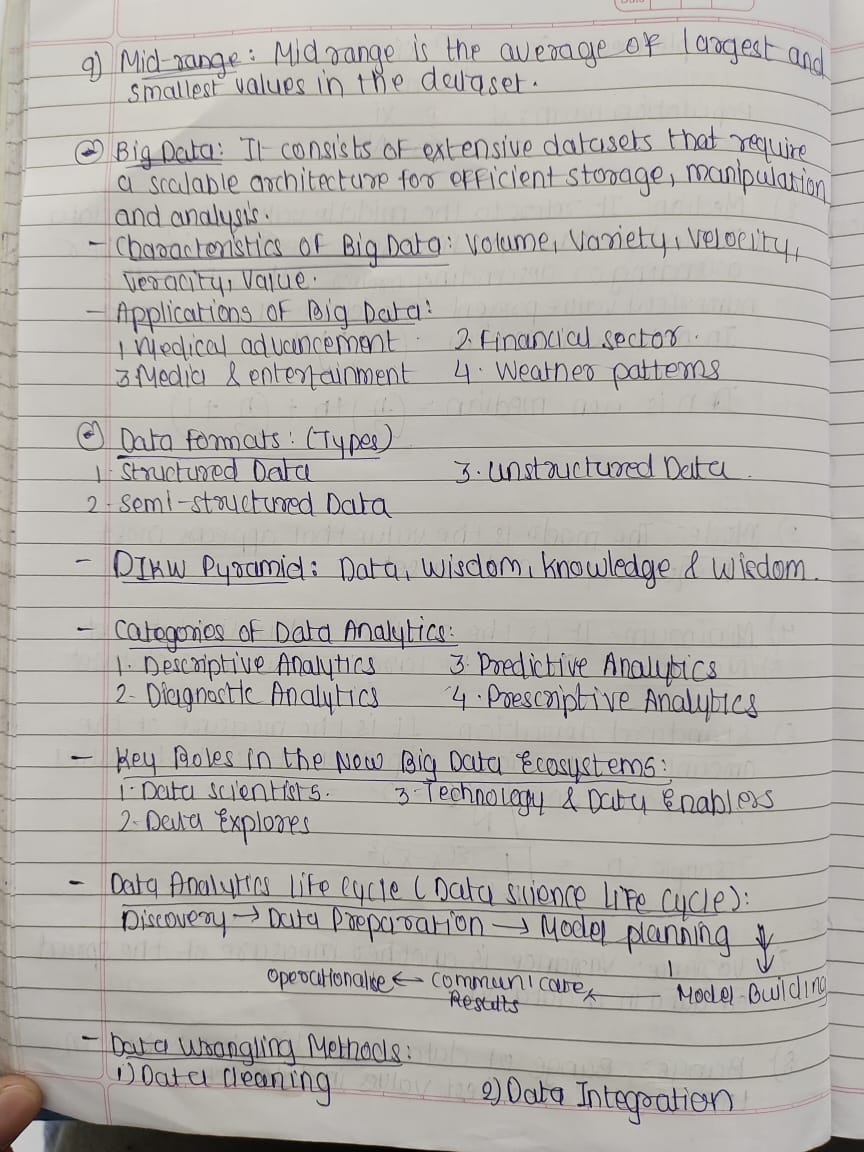 9) Mid-range: Midrange is the average of largest and
smallest values in the dataset.
Big Data: It consists of extensive datasets that require
a scalable architecture for efficient storage, manipulation
and analysis.
- Characteristics of Big Data: Volume, Variety, Velocity,
Veracity, Value.
- Applications of Big Data:
1. Medical advancement 2. Financial sector.
3. Media & entertainment 4. Weather patterns
Data Formats: (Types)
1. Structured Data 3. Unstructured Data.
2. Semi-structured Data
- DIKW Pyramid: Data, Wisdom, Knowledge & Wisdom.
- Categories of Data Analytics:
1. Descriptive Analytics 3. Predictive Analytics
2. Diagnostic Analytics 4. Prescriptive Analytics
- Key Roles in the New Big Data Ecosystems:
1. Data scientists. 3. Technology & Data Enablers
2. Data Explores
- Data Analytics Life Cycle (Data science Life Cycle):
Discovery → Data Preparation → Model planning ↓
Operationalise ← Communicate Model-Building
Results
- Data Wrangling Methods:
1) Data cleaning 2) Data Integration